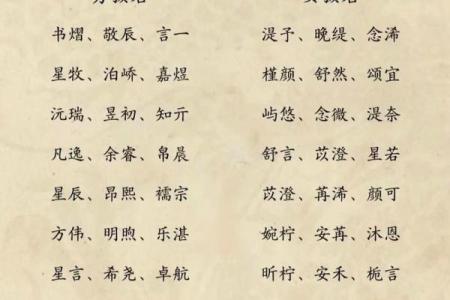 书熠、敬辰、言一
湜予、晚缇、念浠
星牧、泊峤、嘉煜
槿颜、舒然、颂宜
沅瑞、昱初、知亓
屿悠、念微、湜奈
凡逸、余睿、帛晨
舒言、苡澄、星若
星辰、昂熙、襦宗
苡澄、苒浠、颜可
方伟、明煦、乐湛
婉柠、安苒、沐恩
星言、希尧、卓航
昕柠、安禾、栀言